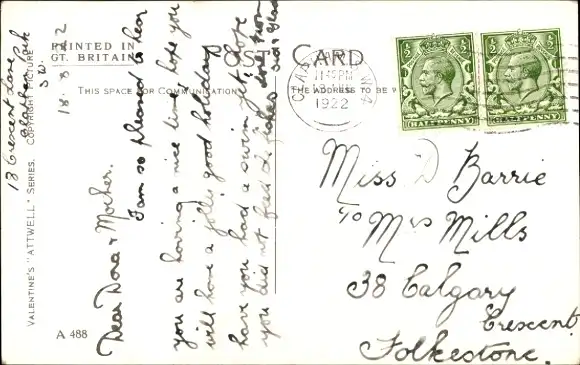 PRINTED IN
GT. BRITAIN
POST CARD
THIS SPACE FOR COMMUNICATION
THE ADDRESS TO BE W
VALENTINE'S "ATTWELL" SERIES. COPYRIGHT PICTURE
A 488
13 Crescent Lane
Clapham Park
S W.
18. 8. 22
Dear Dora & Mother.
I am so pleased to hear
you are having a nice time, hope you
will have a jolly good holiday
have you had a swim yet, hope
you did not feed the fishes love from
Sid & Glad
1922
½ ½
HALFPENNY
½ ½
HALFPENNY
Miss D Barrie
c/o Mrs Mills
38 Calgary
Crescent
Folkestone.